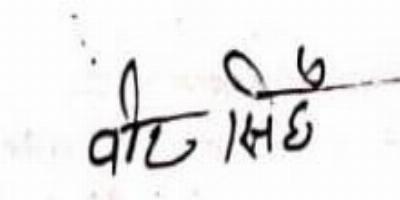 वीर सिंह